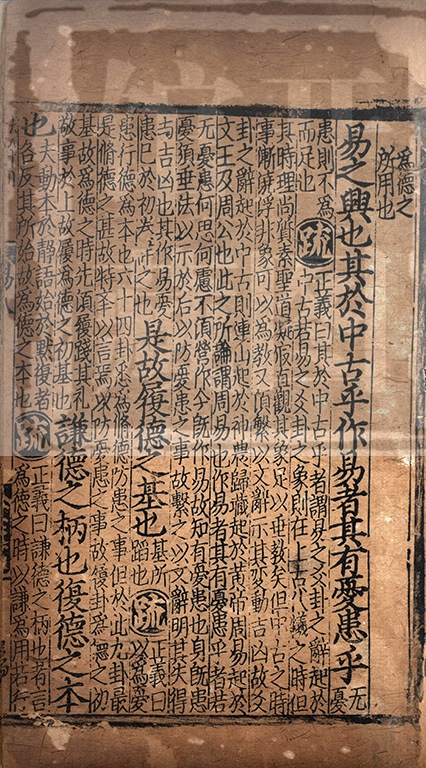 為德之
所用也
易之興也其於中古乎作易者其有憂患乎
无
憂
患則不為
而足也
疏
正義曰其於中古乎者謂易之爻卦之辭起於
中古若易之爻卦之象則在上古伏羲之時但
其時理尚質素聖道凝寂直觀其象足以垂教矣但中古之時
事漸澆浮非象可以為教又須繫以文辭示其變動吉凶故爻
卦之辭起於中古則連山起於神農歸藏起於黃帝周易起於
文王及周公也此之所論謂周易也作易者其有憂患乎者若
无憂患何思何慮不須營作今既作易故知有憂患也身既患
憂須垂法以示於后以防憂患之事故繫之以文辭明其失得
与吉凶也其作易憂
患已於初卷詳之也
是故履德之基也
基所
蹈也
疏
正義曰
以為憂
患行德為本也六十四卦悉為脩德防患之事但於此九卦最
是脩德之甚故特舉以言焉以防憂患之事故履卦為德之初
基故為德之時先須履踐其礼
敬事於上故履為德之初基也
謙德之柄也復德之本
也
夫動本於靜語始於默復者
各反其所始故為德之本也
疏
正義曰謙德之柄也者言
為德之時以謙為用若行